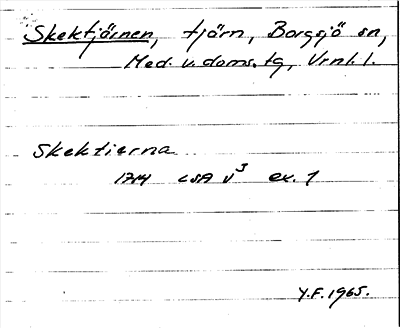 Skektjärnen, tjärn, Borgsjö sn,
Med. v. doms. tg, Vrnl. l.
Skektierna
1714 LSA v³ ex. 1
Y.F. 1965.